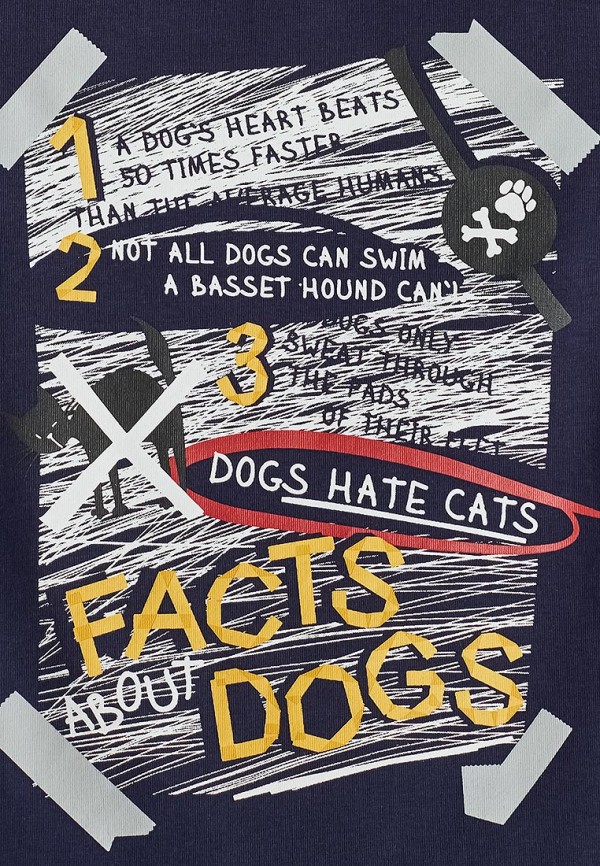 1 A DOG'S HEART BEATS
50 TIMES FASTER
THAN THE AVERAGE HUMANS
2 NOT ALL DOGS CAN SWIM
A BASSET HOUND CAN'T
3 DOGS ONLY
SWEAT THROUGH
THE PADS
OF THEIR FEET
DOGS HATE CATS
FACTS
ABOUT
DOGS